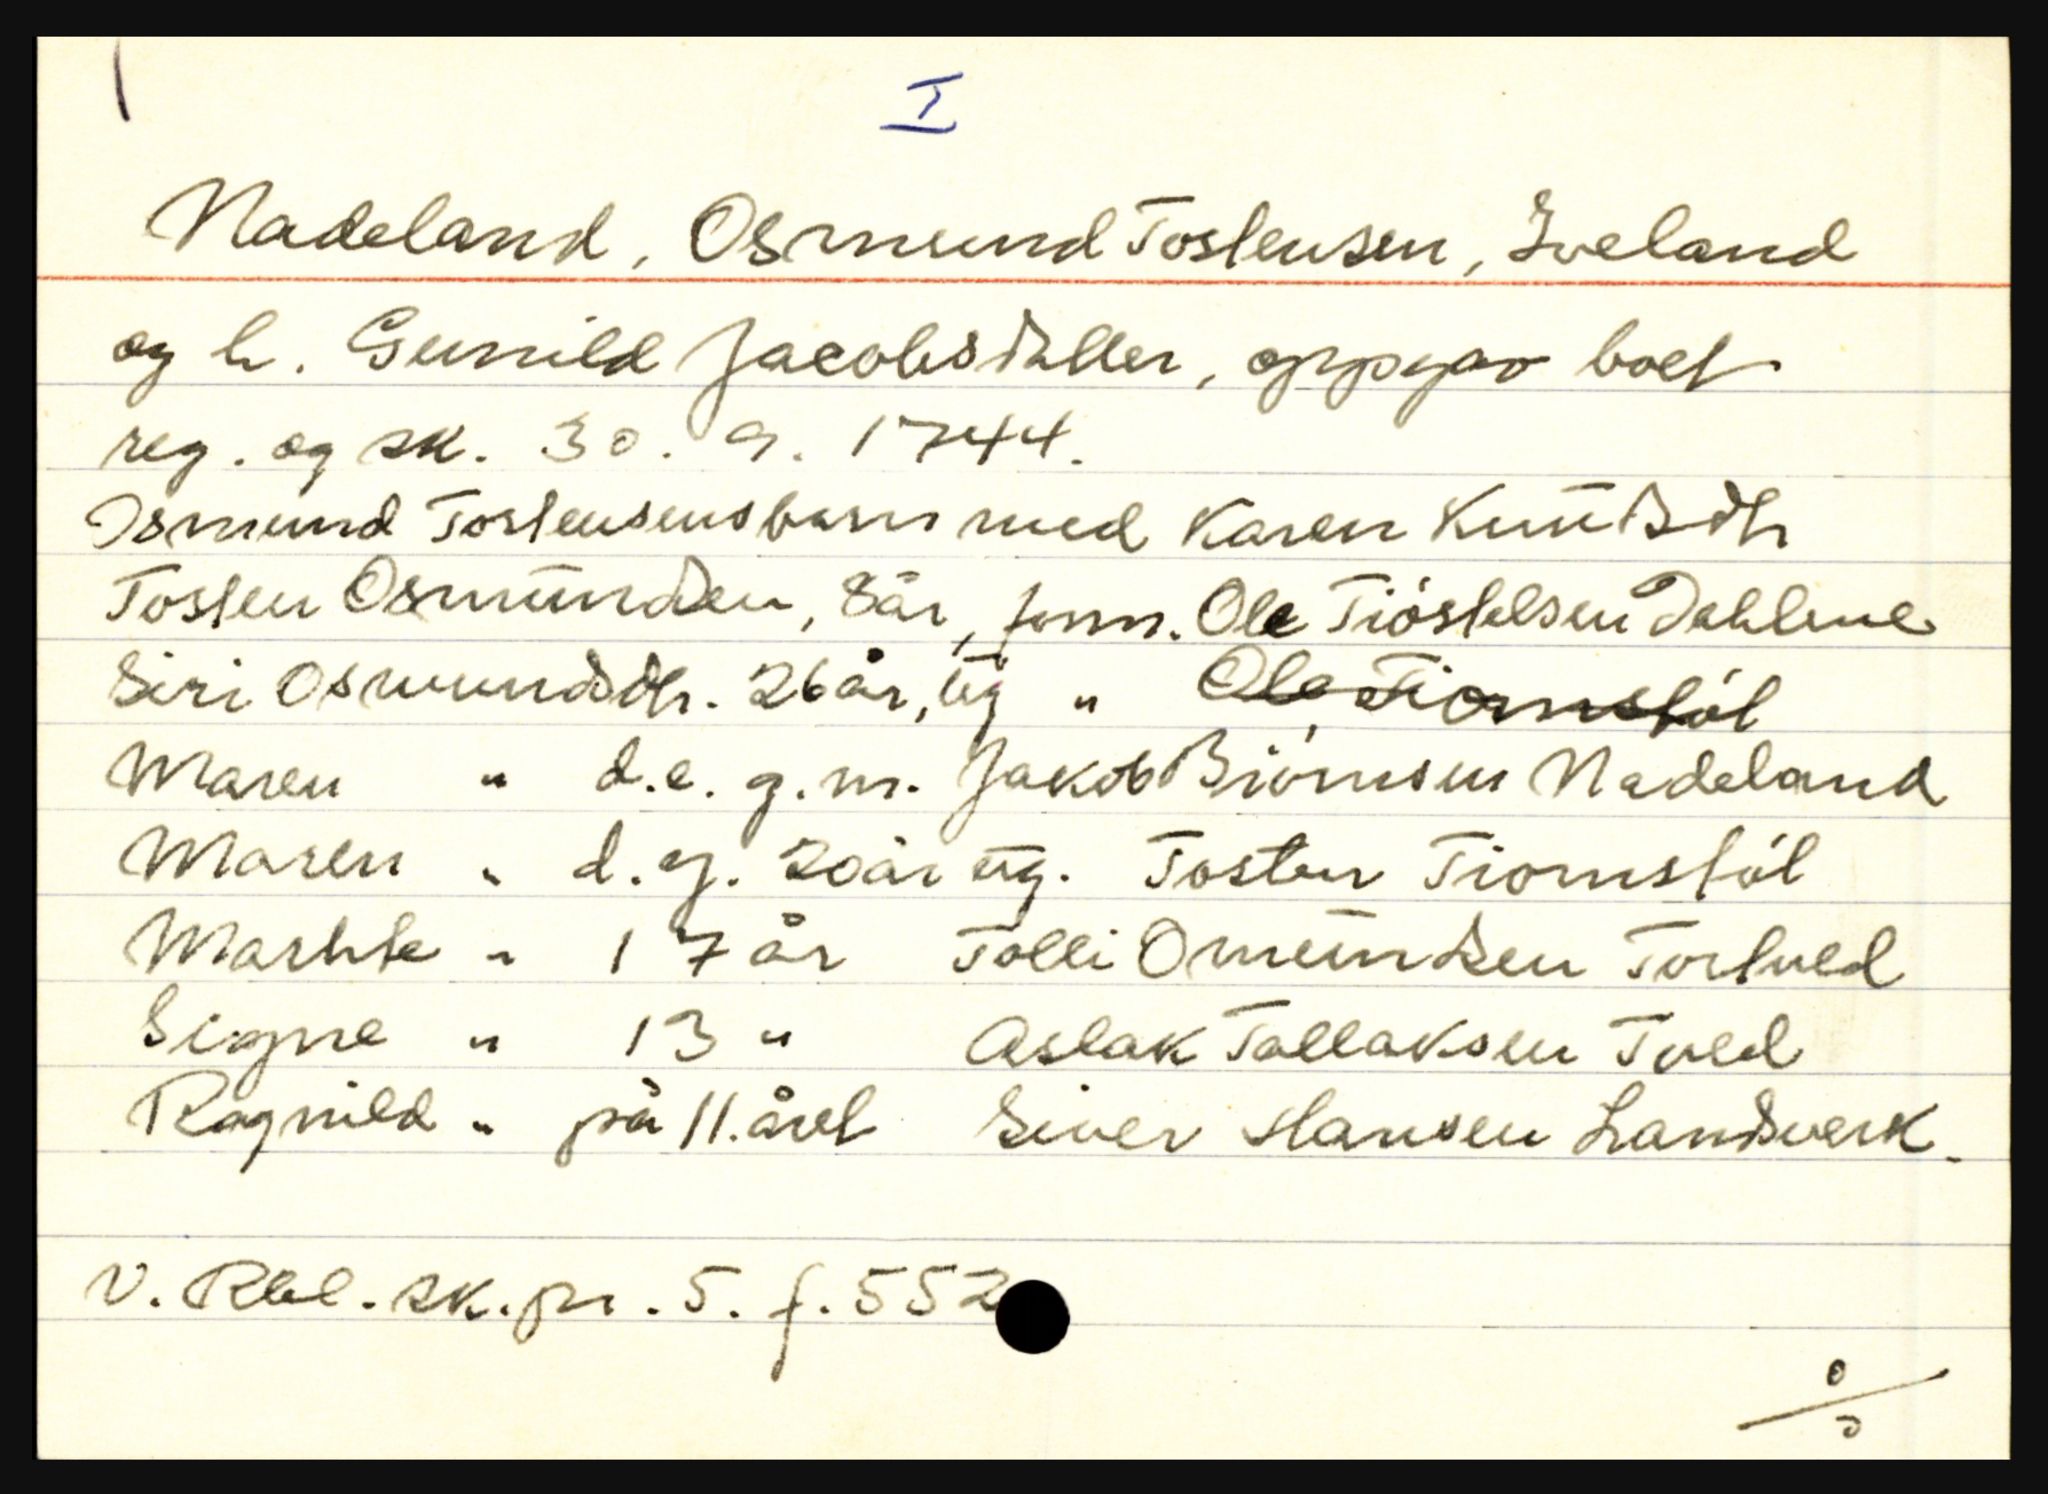 I
Nadeland, Osmund Tostensen, Iveland
og h. Gunild Jacobsdatter, oppgav boet
reg. og sk. 30. 9. 1744.
Osmund Tostensens barn med Karen Knütsdtr
Tosten Osmündsen, 8 år, form. Ole Tióstelsen Dahlene
Siri Osmundsdtr. 26 år, üg " Ole Tiomstól
Maren " d.e. g.m. Jakob Biörnsen Nadeland
Maren " d.y. 20 år üg. Tosten Tiomstól
Marhte " 17 år Tolli Omündsen Tortved
Signe " 13 " Aslak Tallaksen Tved
Ragnild " på 11. året Siver Hansen Landsverk.
V. Rbl. sk. pr. 5. f. 552
0/0